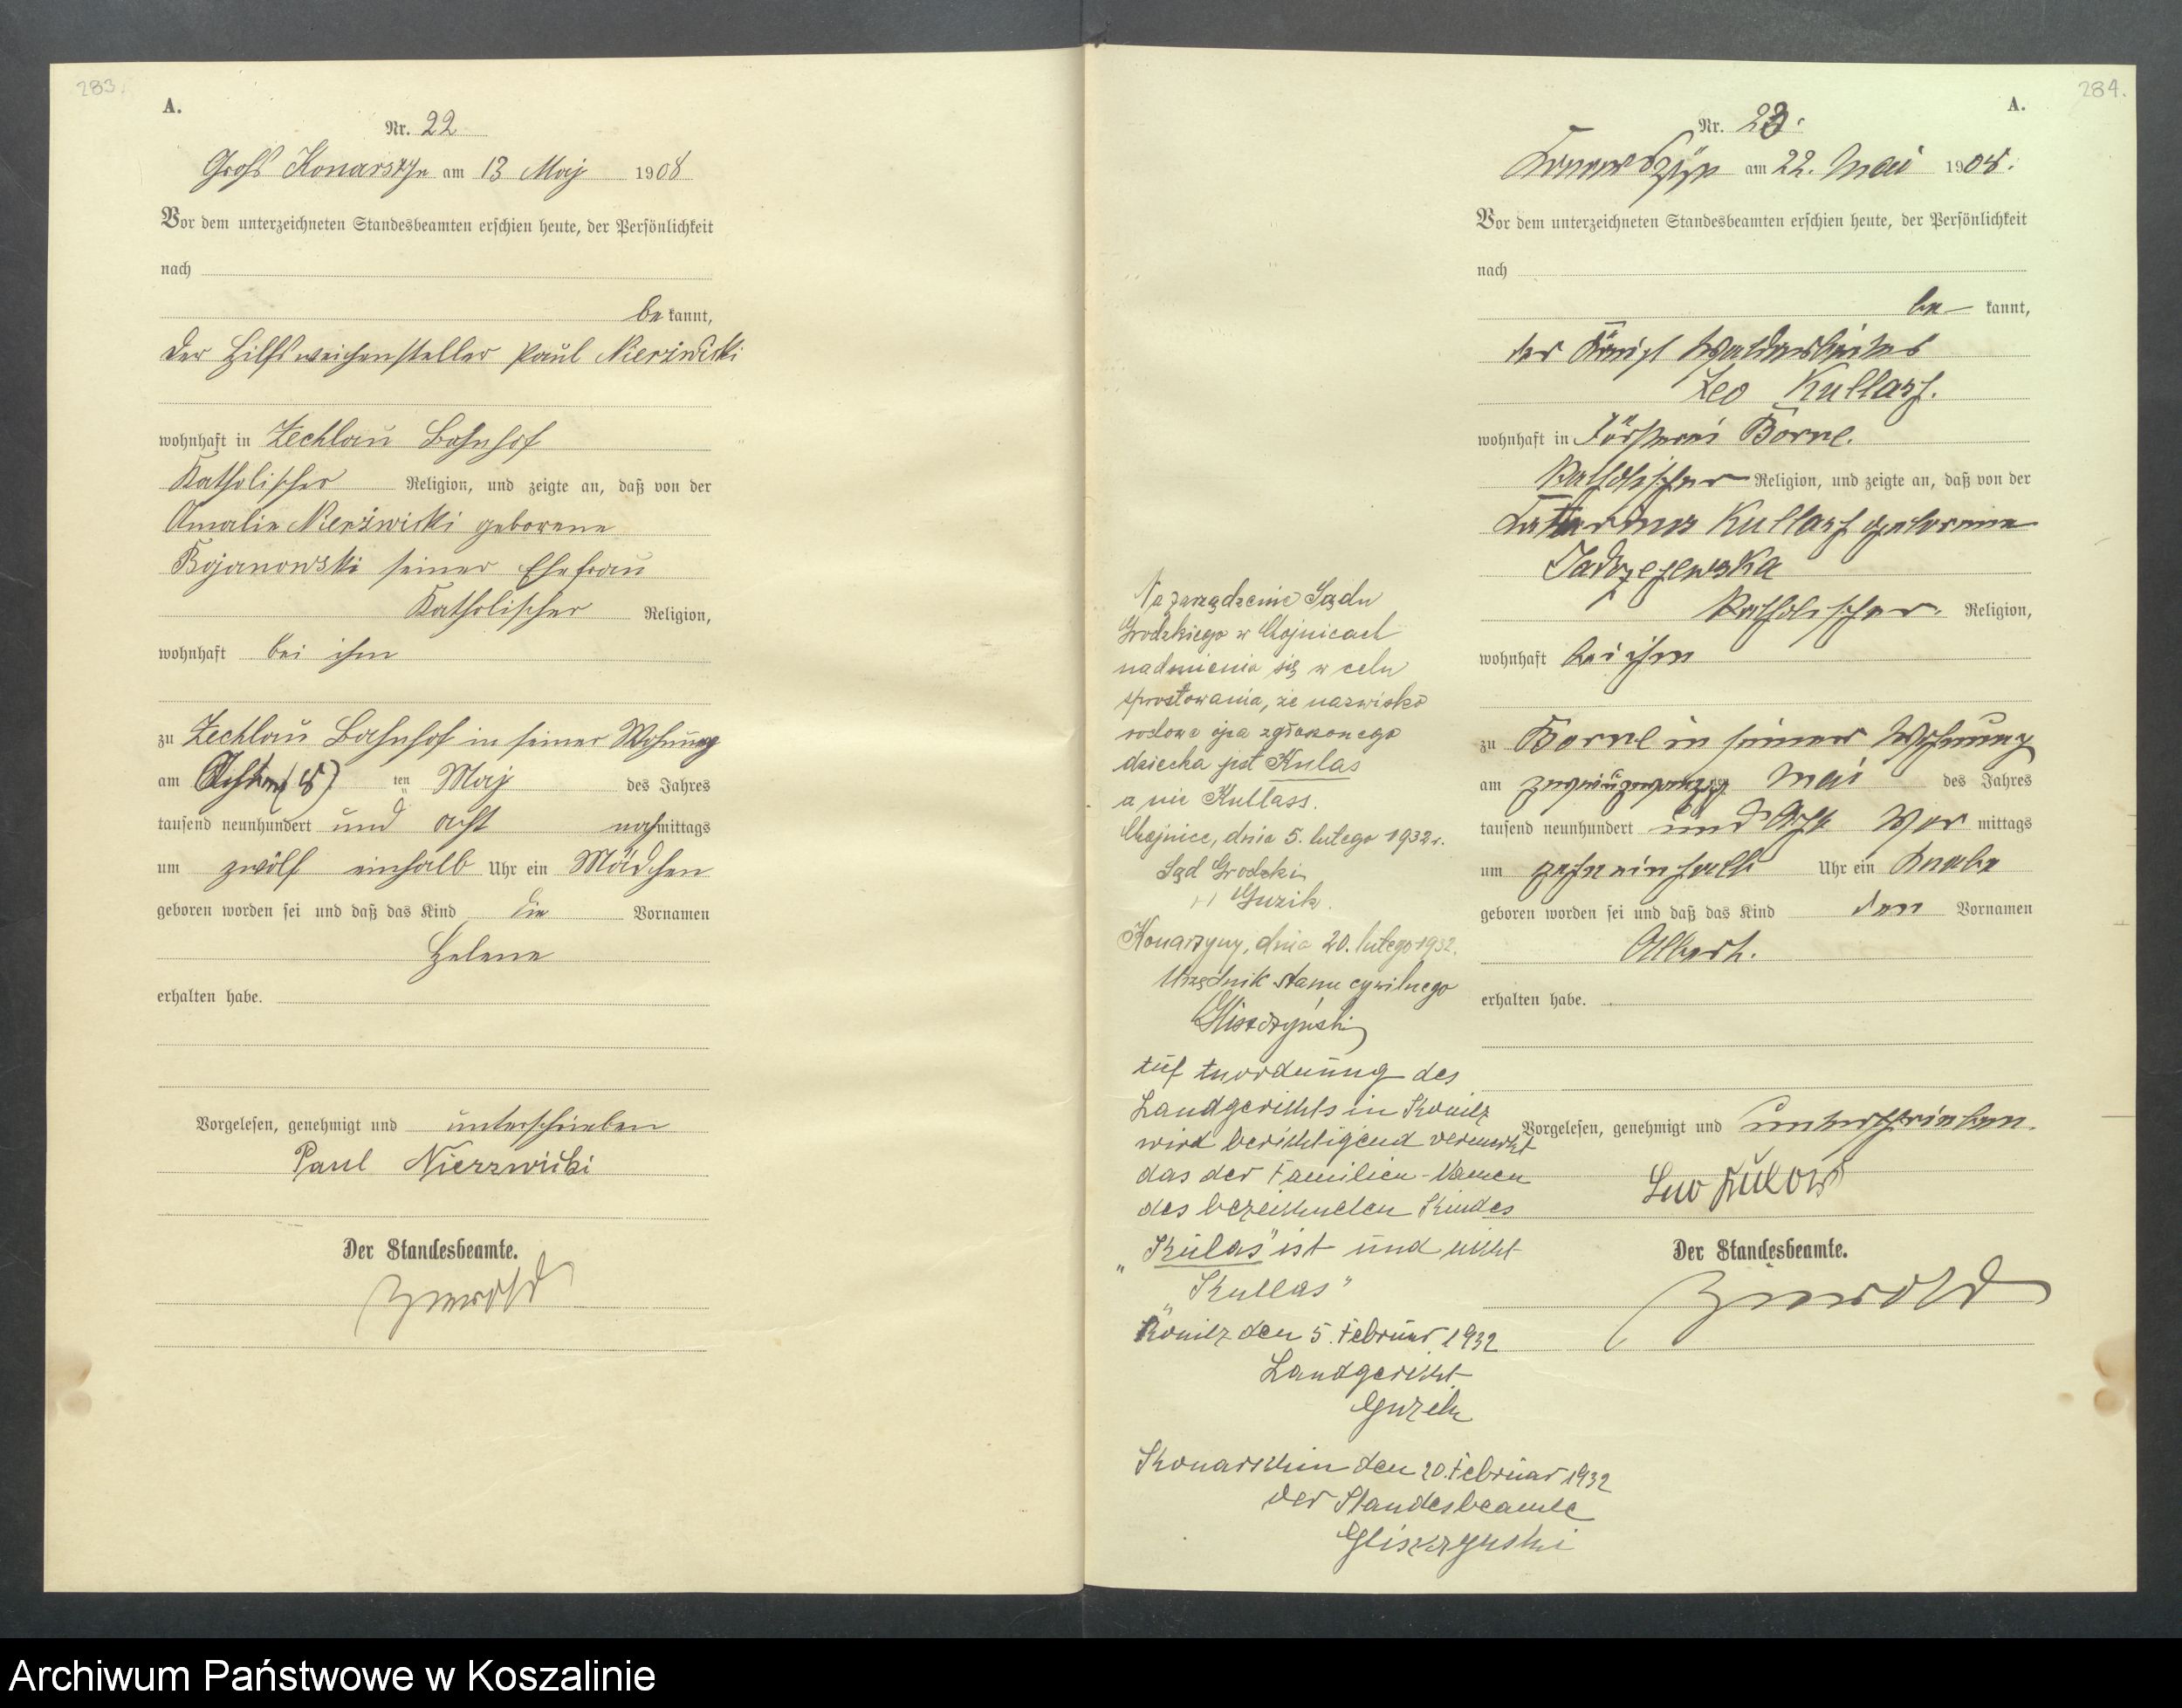 283.
A.
Nr. 22
Groß Konarszyn am 13 Maj 1908
Vor dem unterzeichneten Standesbeamten erschien heute, der Persönlichkeit
nach
be kannt,
der Hilfsweichensteller Paul Nierżwicki
wohnhaft in Zechlau Bahnhof
Katholischer Religion, und zeigte an, daß von der
Amalie Nierżwicki geborene
Bojanowski seiner Ehefrau
Katholischer Religion,
wohnhaft bei ihm
zu Zechlau Bahnhof in seiner Wohnung
am Achten (8) ten Maj des Jahres
tausend neunhundert und acht nachmittags
um zwölf einhalb Uhr ein Mädchen
geboren worden sei und daß das Kind die Vornamen
Helene
erhalten habe.
Vorgelesen, genehmigt und unterschrieben
Paul Nierzwicki
Der Standesbeamte.
284.
A.
Nr. 23.
am 22. Mai 1908.
Vor dem unterzeichneten Standesbeamten erschien heute, der Persönlichkeit
nach
be kannt,
der Königl Waldarbeiter
Leo Kullass.
wohnhaft in Försterei Bornl.
Katholischer Religion, und zeigte an, daß von der
Katharina Kullass geborene
Katholischer Religion,
wohnhaft bei ihm
zu Bornl in seiner Wohnung
am zweiundzwanzig Mai des Jahres
tausend neunhundert und Acht Vor mittags
um zehn einhalb Uhr ein Knabe
geboren worden sei und daß das Kind den Vornamen
Albert.
erhalten habe.
Vorgelesen, genehmigt und unterschrieben.
Leo
Der Standesbeamte.
Na zarządzenie Sądu
Grodzkiego w Chojnicach
nadmienia się w celu
sprostowania, że nazwisko
rodowe ojca zgłoszonego
dziecka jest Kulas
a nie Kullass.
Chojnice, dnia 5. lutego 1932 r.
Sąd Grodzki
Guzik.
Konarzyny, dnia 20. lutego 1932.
Urzędnik stanu cywilnego
Gliszczyński
Auf Anordnung des
Landgerichts in Konitz
wird berichtigend vermerkt
das der Familien-Namen
des bezeichneten Kindes
„Kulas" ist und nicht
„Kullas"
Konitz den 5. Februar 1932
Landgericht
Guzik
Konarschin den 20. Februar 1932
der Standesbeamte
Gliszczynski
Archiwum Państwowe w Koszalinie